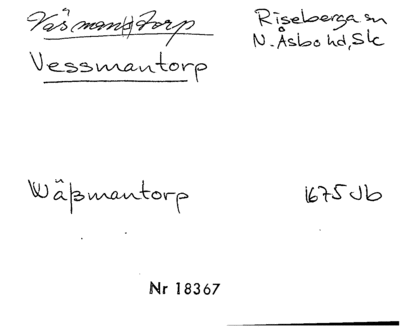 Väsmanstorp
Riseberga sn
Vessmantorp
N. Åsbo hd, Sk
Wäßmantorp
1675 Jb
Nr 18367